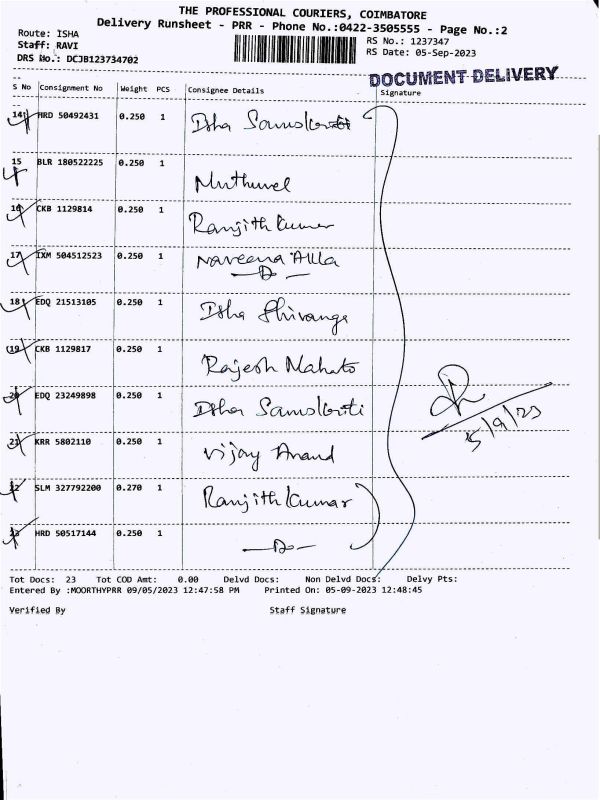 THE PROFESSIONAL COURIERS, COIMBATORE
Delivery Runsheet - PRR - Phone No.:0422-3505555 - Page No.:2
Route: ISHA
Staff: RAVI
DRS No.: DCJB123734702
RS No.: 1237347
RS Date: 05-Sep-2023
DOCUMENT DELIVERY
S No Consignment No Weight PCS Consignee Details Signature
14 HRD 50492431 0.250 1 Isha Samskriti
15 BLR 180522225 0.250 1 Muthuvel
16 CKB 1129814 0.250 1 Ranjith Kumar
17 IXM 504512523 0.250 1 Naveena Alla
18 EDQ 21513105 0.250 1 Isha Shivanga
19 CKB 1129817 0.250 1 Rajesh Mahato
20 EDQ 23249898 0.250 1 Isha Samskriti
21 KRR 5802110 0.250 1 Vijay Anand
22 SLM 327792200 0.270 1 Ranjith Kumar
23 HRD 50517144 0.250 1
5/9/23
Tot Docs: 23 Tot COD Amt: 0.00 Delvd Docs: Non Delvd Docs: Delvy Pts:
Entered By :MOORTHYPRR 09/05/2023 12:47:58 PM Printed On: 05-09-2023 12:48:45
Verified By Staff Signature